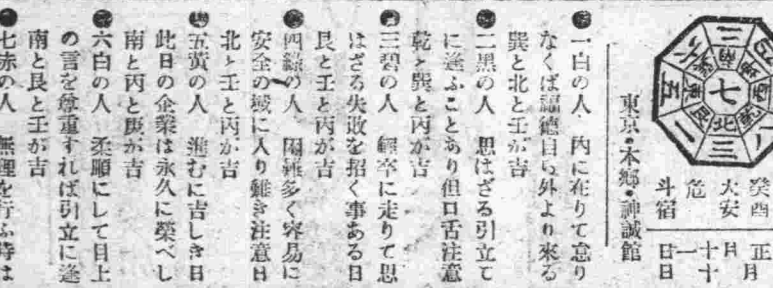 癸酉
大安
危
斗宿
正月
廿日
七
東京・本郷・神誠館
●一白の人 内に在りて怠り
なくば福徳自ら外より來る
巽と北と壬が吉
●二黒の人 思はざる引立て
に逢ふことあり但口舌注意
乾と巽と丙が吉
●三碧の人 輕卒に走りて思
はざる失敗を招く事ある日
艮と壬と丙が吉
●四緑の人 困難多く容易に
安全の域に入り難き注意日
北と壬と丙が吉
●五黄の人 進むに吉しき日
此日の企業は永久に榮べし
南と丙と庚が吉
●六白の人 柔順にして目上
の言を尊重すれば引立に逢
南と艮と壬が吉
●七赤の人 無理を行ふ時は